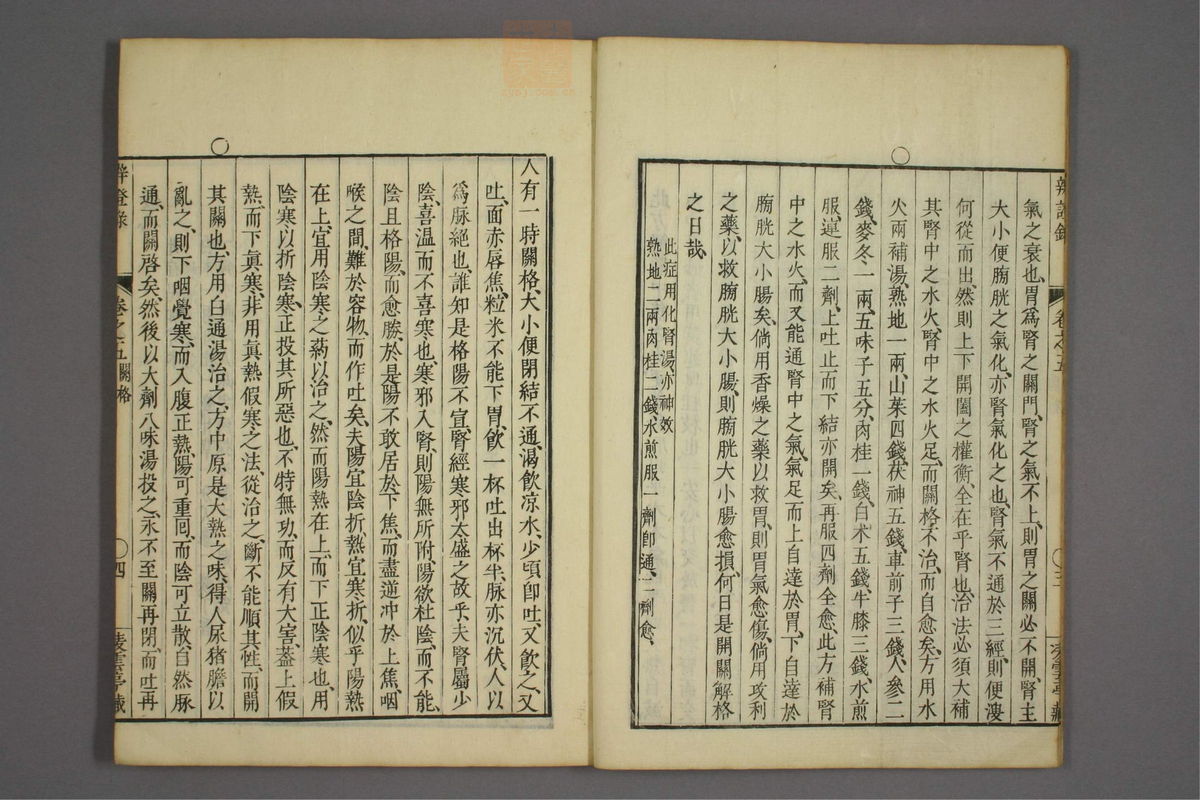 氣之衰也、胃爲腎之關門、腎之氣不上、則胃之關必不開、腎主
大小便、膀胱之氣化、亦腎氣化之也、腎氣不通於三經、則便溲
何從而出、然則上下開闔之權衡、全在乎腎也、治法必須大補
其腎中之水火、腎中之水火足、而關格不治、而自愈矣、方用水
火兩補湯、熟地一兩、山茱四錢、茯神五錢、車前子三錢、人參二
錢、麥冬一兩、五味子五分、肉桂一錢、白术五錢、牛膝三錢、水煎
服、連服二劑、上吐止而下結亦開矣、再服四劑全愈、此方補腎
中之水火、而又能通腎中之氣、氣足而上自達於胃、下自達於
膀胱大小腸矣、倘用香燥之藥以救胃、則胃氣愈傷、倘用攻利
之藥、以救膀胱大小腸、則膀胱大小腸愈損、何日是開關解格
之日哉、
此症用化腎湯、亦神效
熟地二兩、肉桂二錢、水煎服一劑即通、二劑愈、
辨證錄
卷之五
三
凌雲亭藏
人有一時關格、大小便閉結不通、渴飲凉水、少頃即吐、又飲之、又
吐、面赤唇焦、粒米不能下胃、飲一杯吐出杯半、脉亦沉伏、人以
爲脉絶也、誰知是格陽不宜、腎經寒邪太盛之故乎、夫腎屬少
陰、喜温而不喜寒也、寒邪入腎、則陽無所附、陽欲杜陰、而不能、
陰且格陽、而愈勝、於是陽不敢居於下焦、而盡逆冲於上焦、咽
喉之間、難於容物、而作吐矣、夫陽宜陰折、熱宜寒折、似乎陽熱
在上、宜用陰寒之藥以治之、然而陽熱在上、而下正陰寒也、用
陰寒以折陰寒、正投其所惡也、不特無功、而反有大害、葢上假
熱、而下眞寒、非用眞熱假寒之法、從治之、斷不能順其性、而開
其關也、方用白通湯治之、方中原是大熱之味、得人尿猪膽以
亂之、則下咽覺寒、而入腹正熱、陽可重囘、而陰可立散、自然脉
通、而關啓矣、然後以大劑八味湯投之、永不至關再閉、而吐再
辨證錄
卷之五關格
四
凌雲亭藏